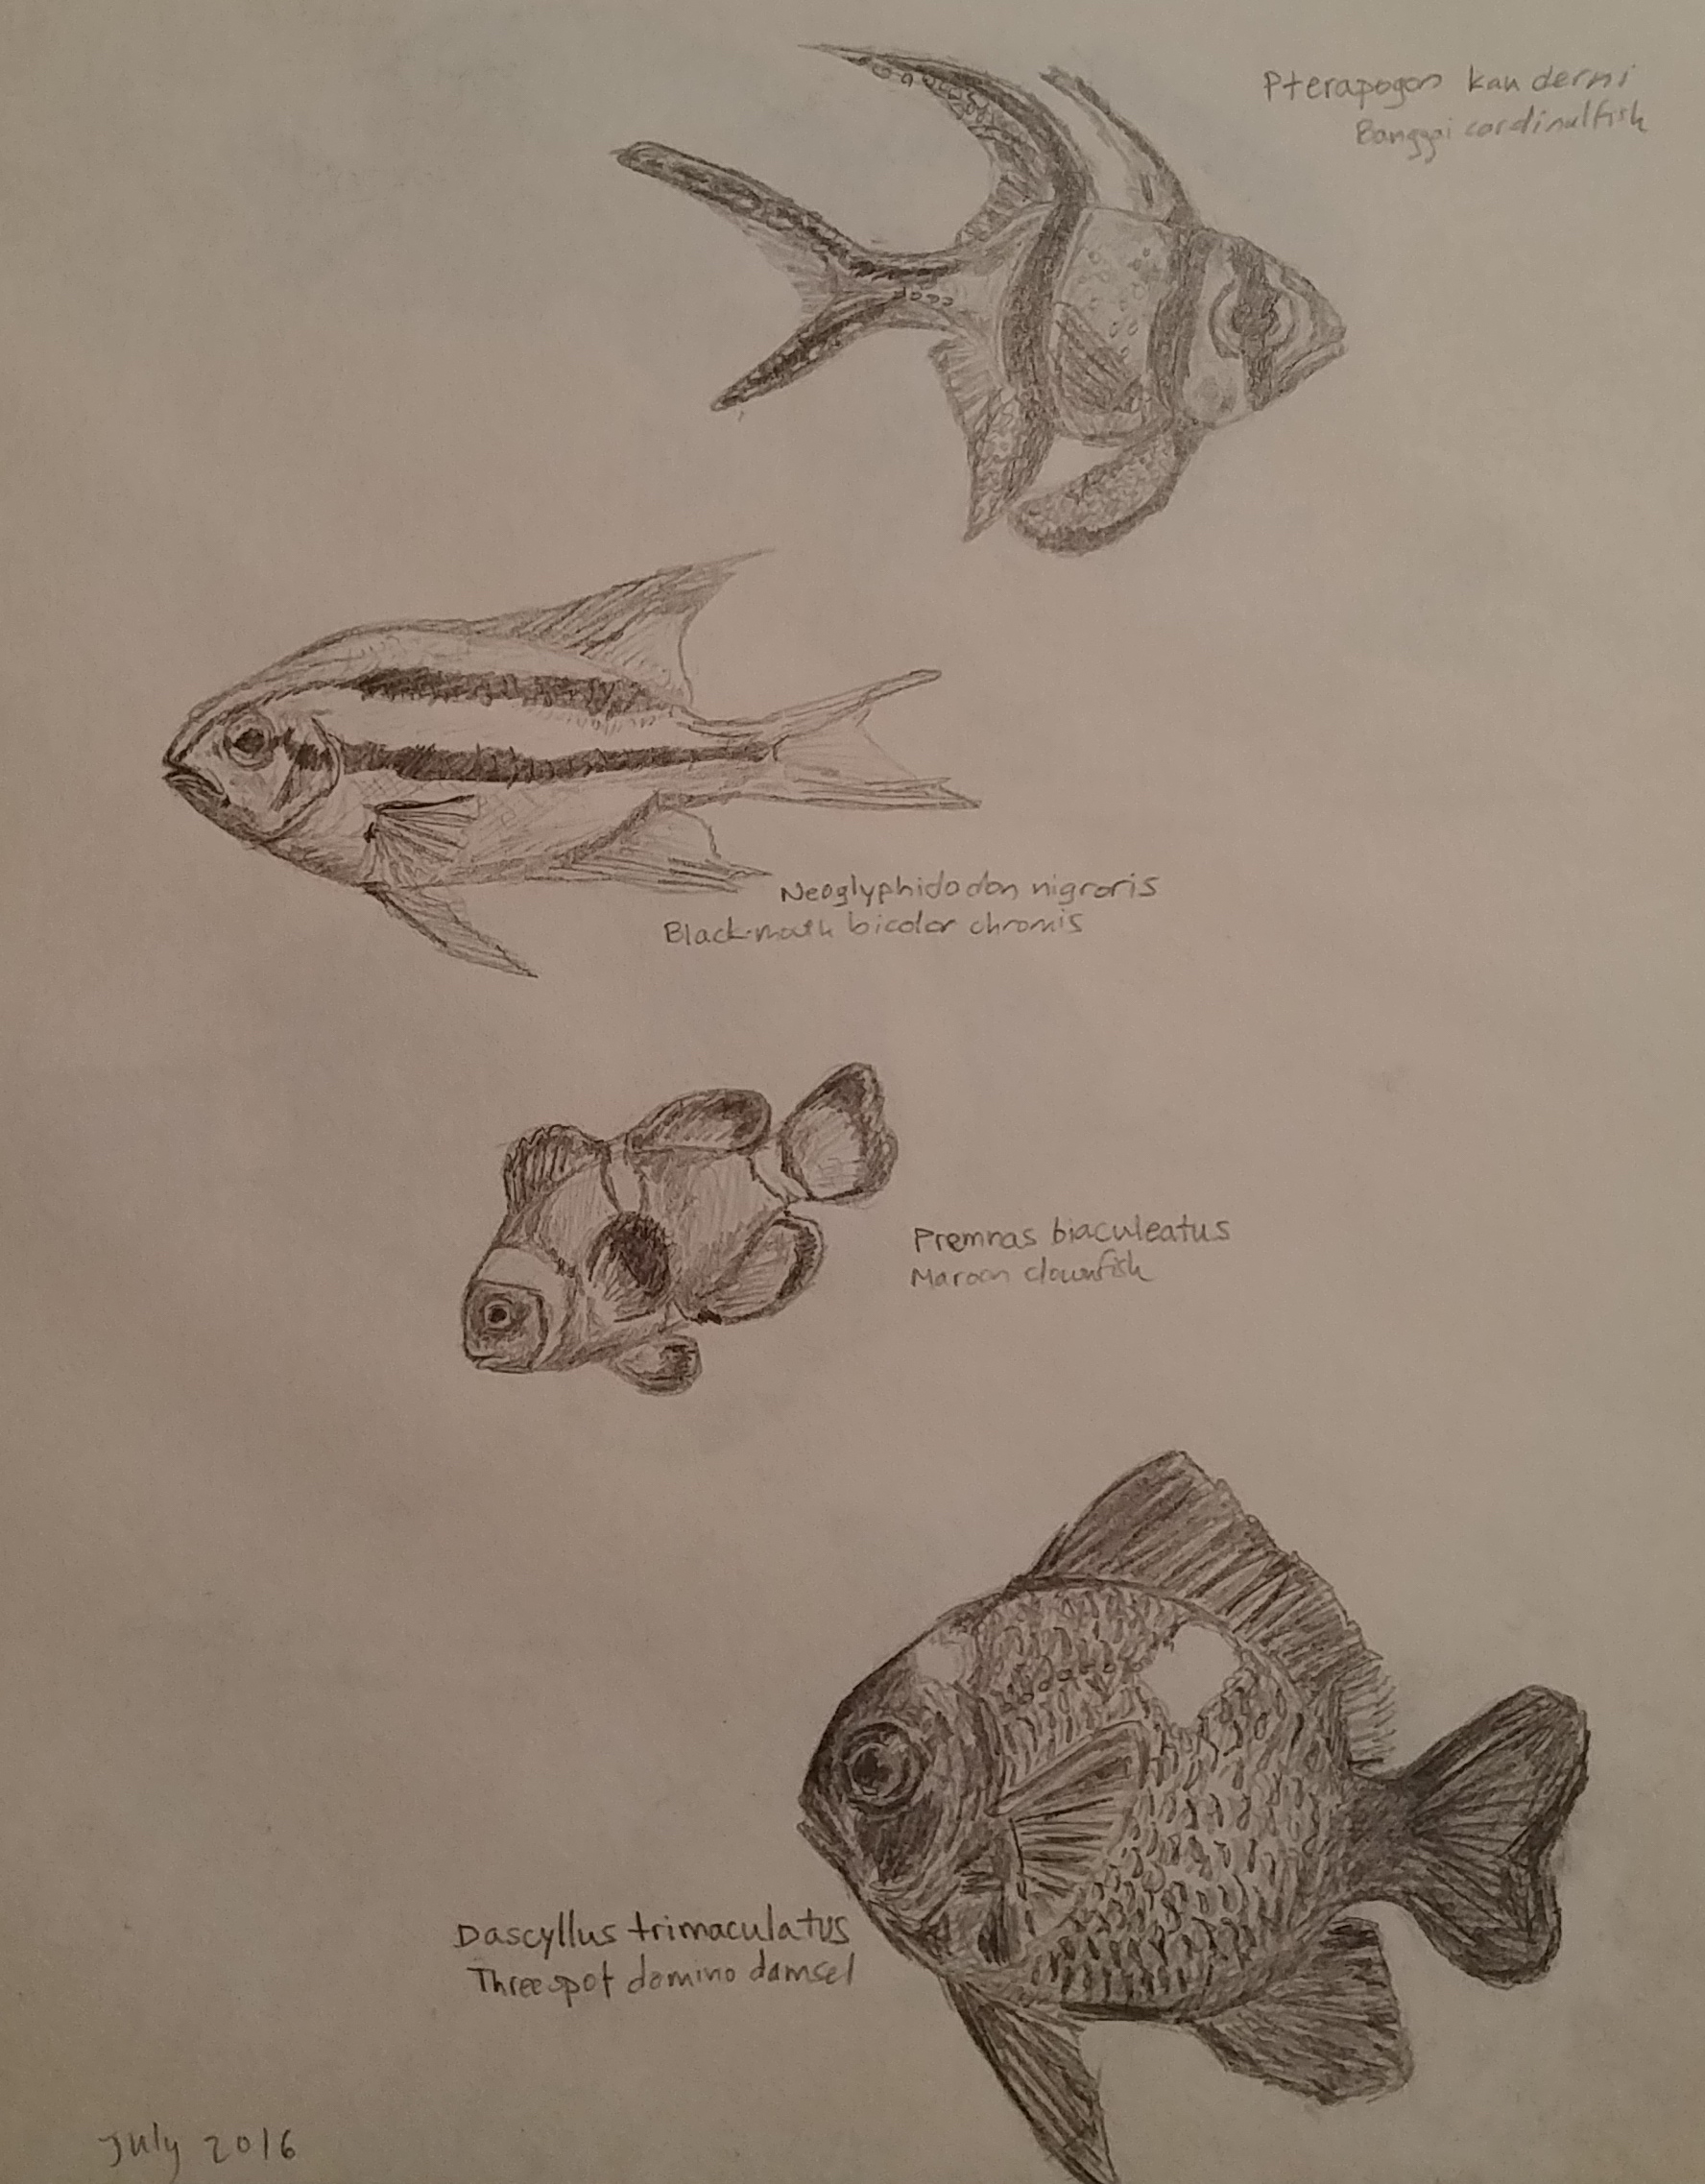 Pterapogon kauderni
Banggai cardinalfish
Neoglyphidodon nigroris
Black-mouth bicolor chromis
Premnas biaculeatus
Maroon clownfish
Dascyllus trimaculatus
Threespot domino damsel
July 2016